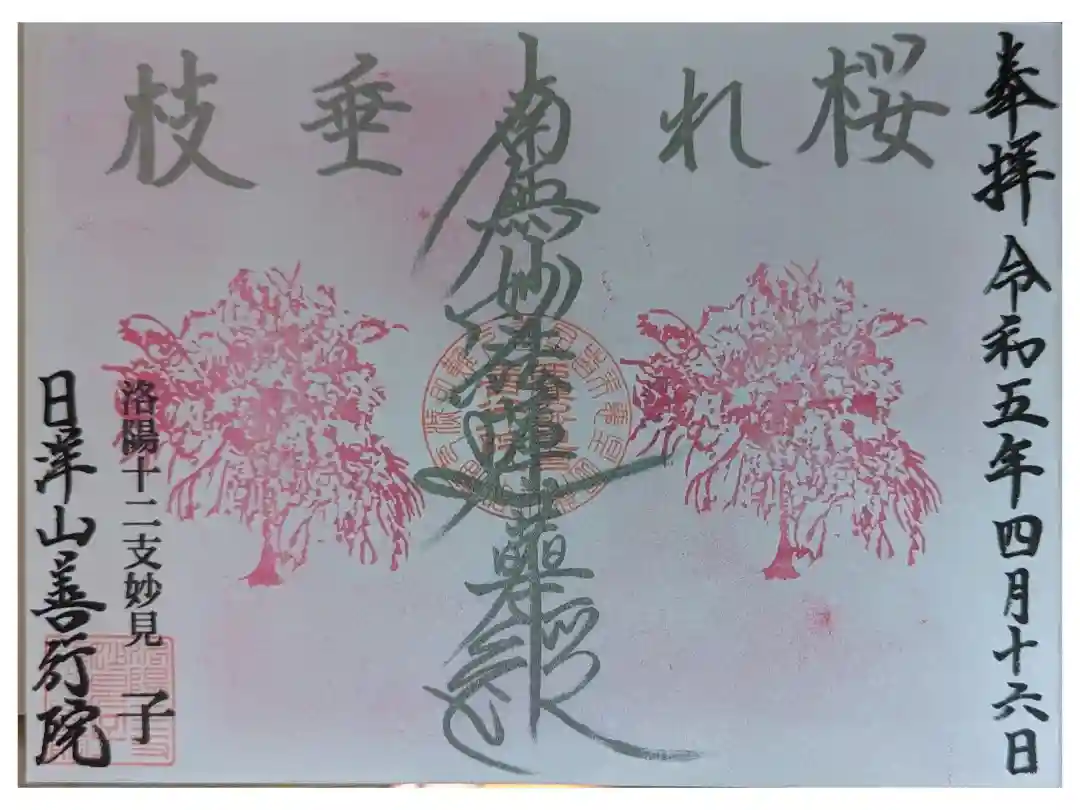 奉拝 令和五年四月十六日
枝垂れ桜
南無妙法蓮華経
洛陽十二支妙見 子
日洋山善行院